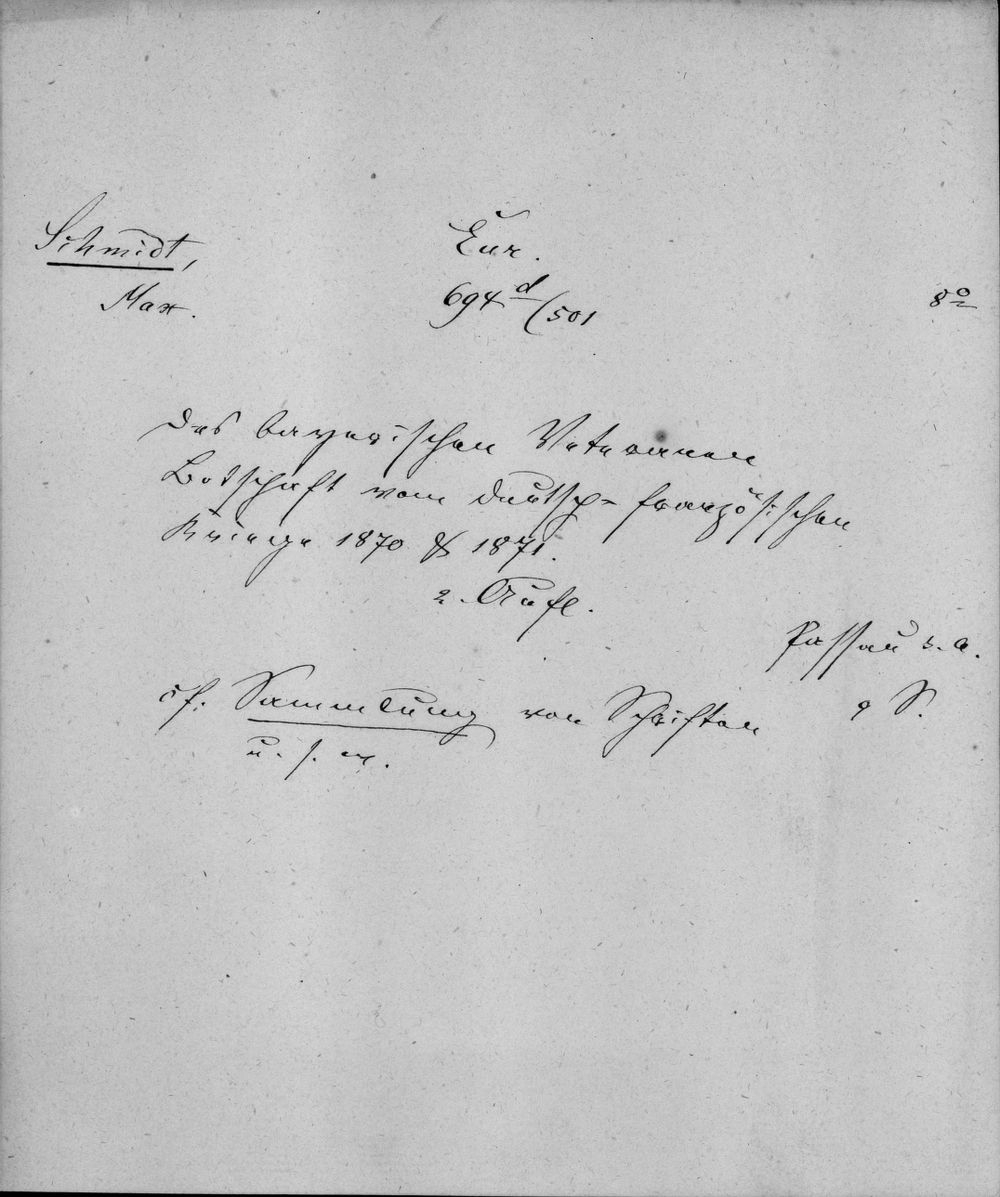 Schmidt,
Max.
Eur.
694 d/501
8o
Des bayerischen Veteranen
Botschaft vom deutsch-französischen
Kriege 1870 & 1871.
2. Aufl.
Passau s. a.
9 S.
cf. Sammlung von Schriften
u. s. w.